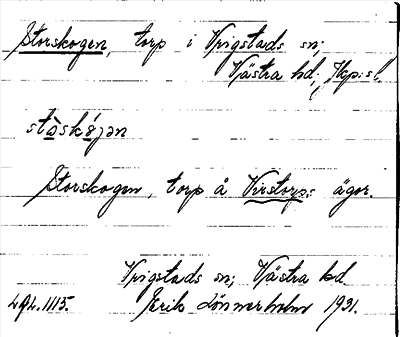 Storskogen, torp i Vrigstads sn;
Västra hd; Jkp:s l.
stòskógən
Storskogen, torp å Virstorps ägor.
Vrigstads sn; Västra hd
Erik Lönnerholm 1931.